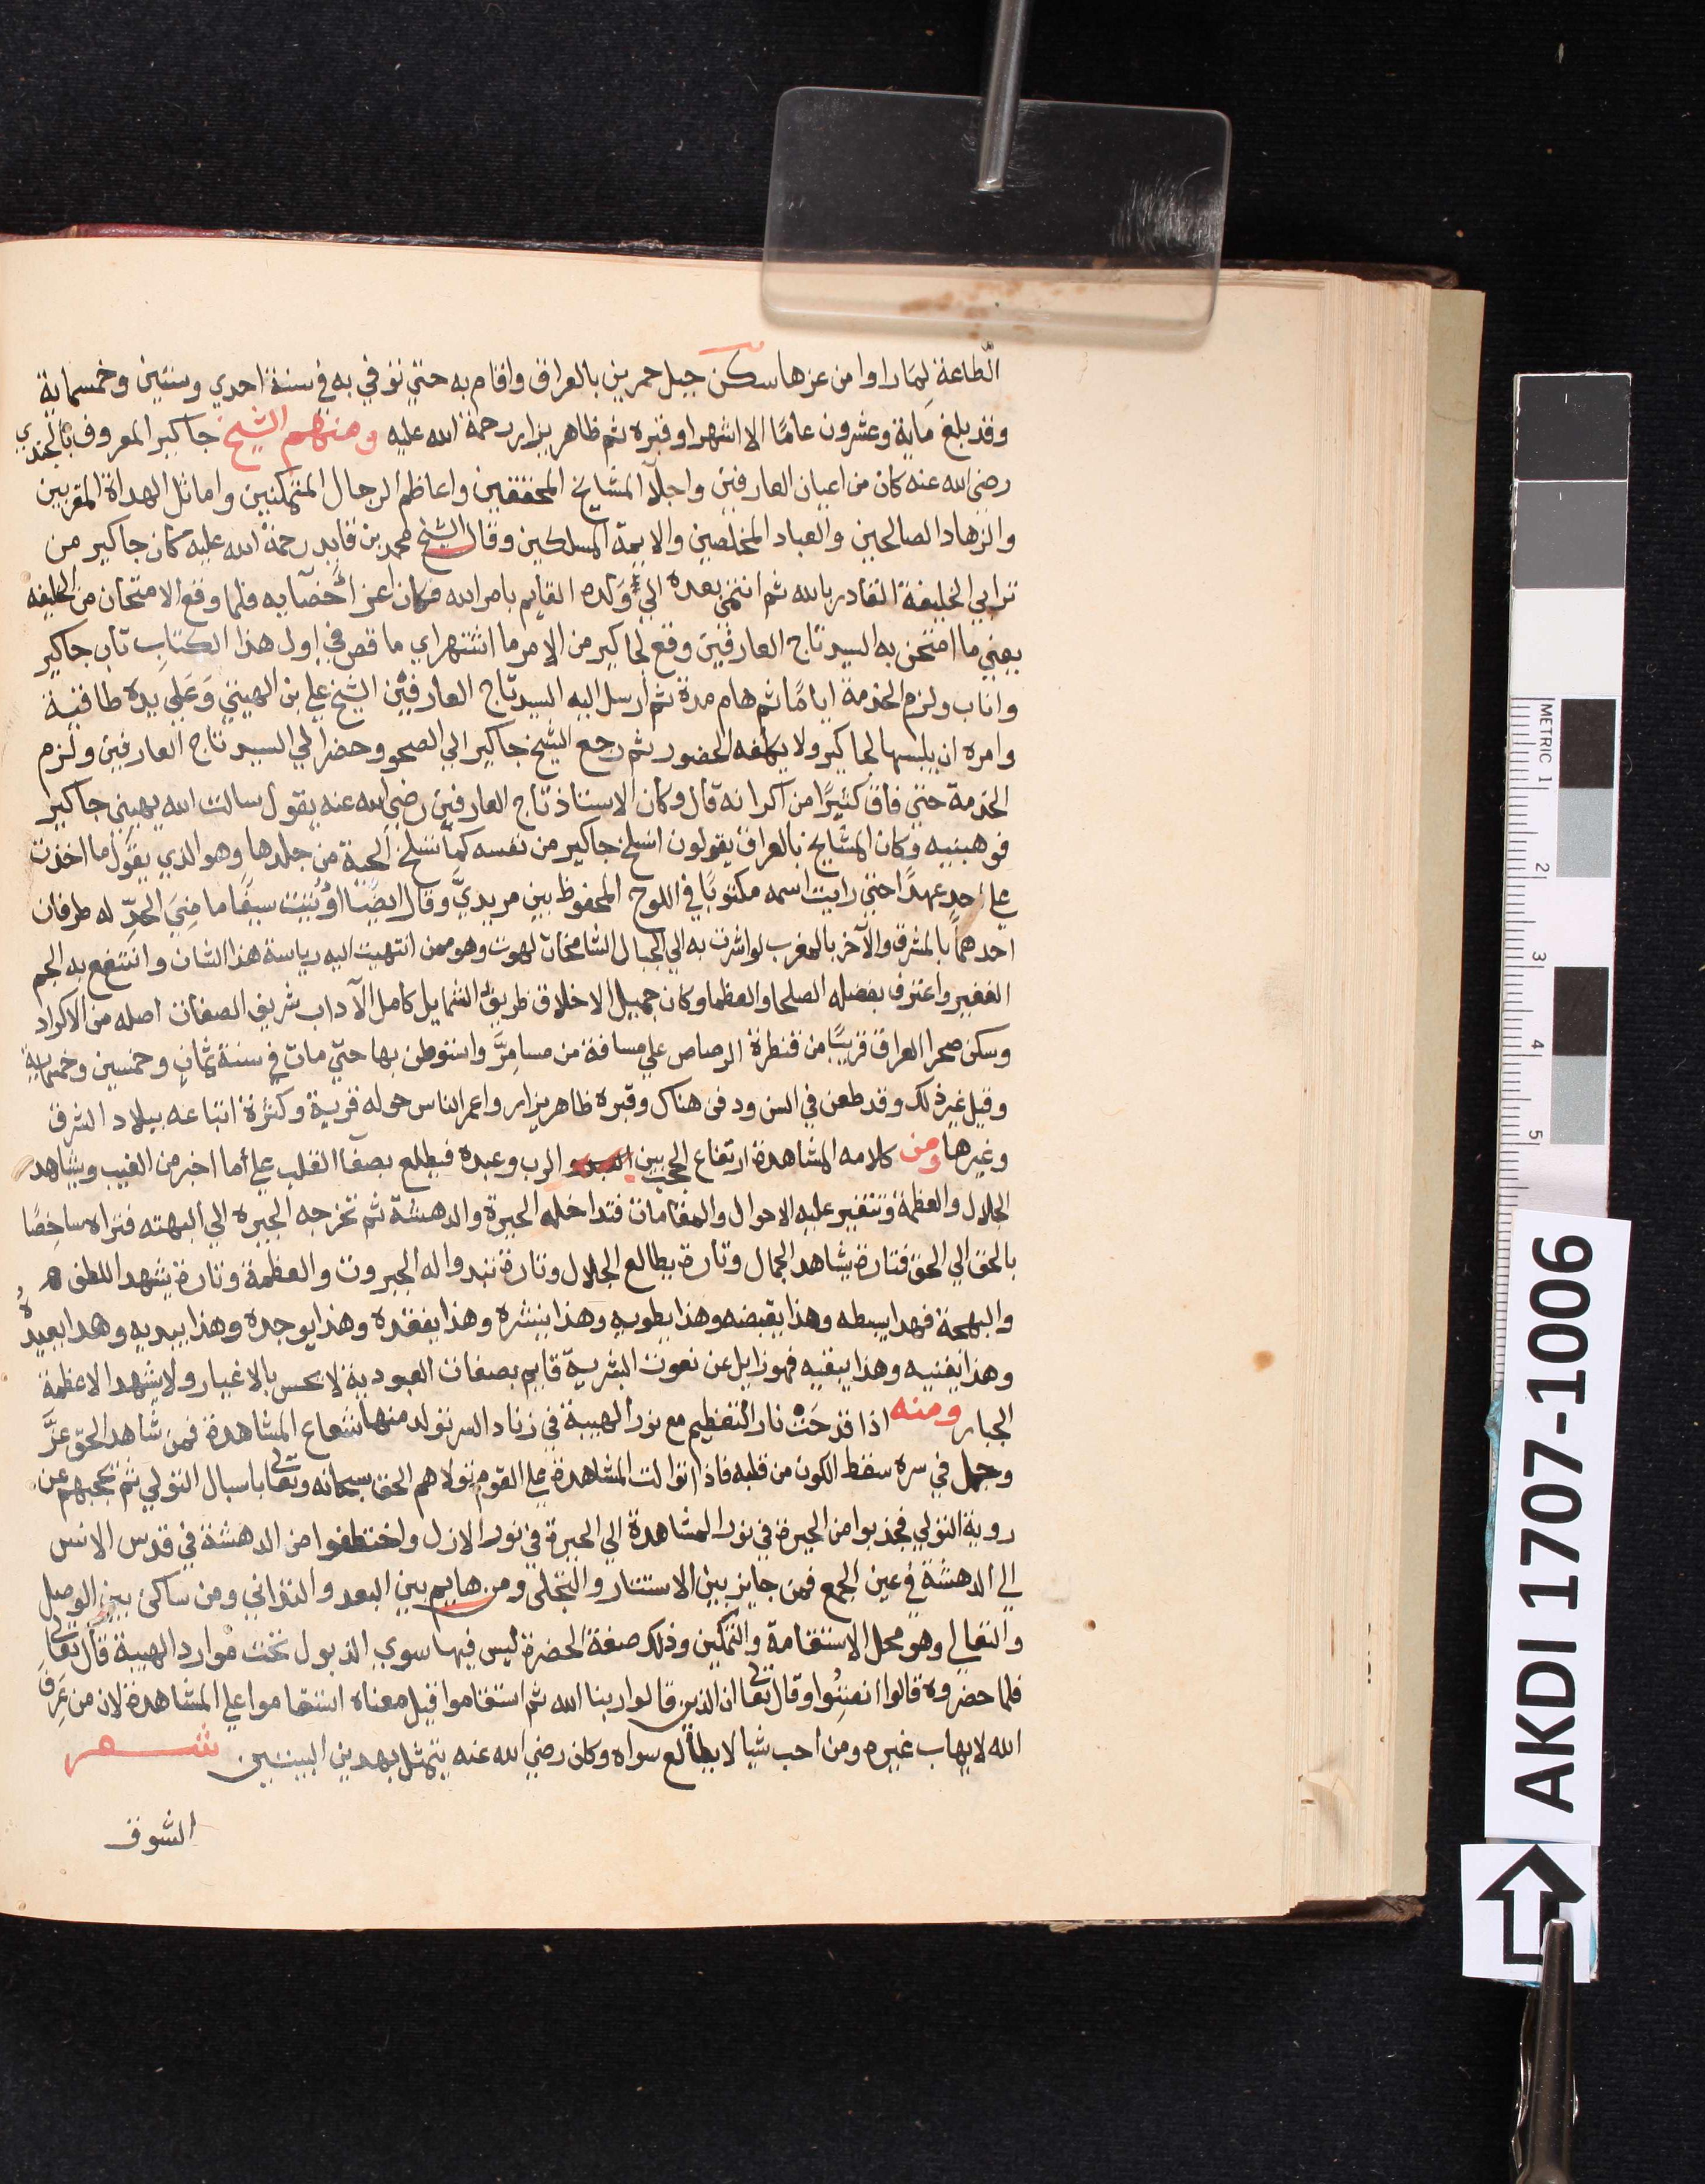 الطاعة لما راوا من عزها سكن جبل حمرين بالعراق واقام به حتي توفي به في سنة احدي وستين وخمساية
وقد بلغ ماية وعشرون عامًا الا اشهرا وقبره ثم ظاهر يزار رحمة الله عليه ومنهم الشيخ جاكير المعروف بالجندي
رضي الله عنه كان من اعيان العارفين واجلآ المشايخ المحققين واعاظم الرجال المتمكنين واماثل الهداة المقربين
والزهاد الصالحين والعباد المخلصين والايمة المسلكين وقال الشيخ محمد بن قايد رحمة الله عليه كان جاكير من
ترابي الخليفة القادر بالله ثم انتمي بعده الي ولده القايم بامر الله فكان اعز اخصآيه فلما وقع الامتحان من الخليفه
يعني ما امتحن به السيد تاج العارفين وقع لجاكير من الامر ما اشتهر اي ما قص في اول هذا الكتاب تاب جاكير
واناب ولزم الخدمة ايامًا ثم هام مدة ثم ارسل اليه السيد تاج العارفين الشيخ علي بن الهيتي وَعَلي يده طاقية
وامره ان يلبسها لجاكير ولا يكلفه الحضور ثم رجع الشيخ جاكير الي الصحو وحضر الي السيد تاج العارفين ولزم
الخدمة حتي فاق كثيرًا من اكرانه قال وكان الاستاذ تاج العارفين رضي الله عنه يقول سالت الله يهبني جاكير
فوهبنيه وكان المشايخ بالعراق يقولون انسلخ جاكير من نفسه كما تنسلخ الحية من جلدها وهو الذي يقول ما اخذت
علي احدٍ عهدًا حتي رايت اسمه مكتوبًا في اللوح المحفوظ بين مريديَّ وقال ايضًا اؤتيت سيفًا ماضِيَ الحدِّ له طرفان
احدهما بالمشرق والآخر بالمغرب لو اشرت به الي الجبال الشامخات لهوت وهو ممن انتهيت اليه رياسة هذا الشان وانتفع به الجم
الغفير واعترف بفضله الصلحا والعظما وكان جميل الاخلاق ظريف الشمايل كامل الآداب شريف الصفات اصله من الاكراد
وسكن صحرا العراق قريبًا من قنطرة الرصاص علي مسافة من سامِرَّا واستوطن بها حتي مات في سنة ثمانٍ وخمسين وخمسماية
وقيل غير ذلك وقد طعن في السن ودفن هناك وقبره ظاهر يزار واعمر الناس حوله قرية وكثرة اتباعه ببلاد الشرق
وغيرها ومن كلامه المشاهدة ارتفاع الحجب بين الرب وعبده فيطلع بصفآ القلب علي أما اخبر من الغيب ويشاهد
الجلال والعظمة وتتغير عليه الاحوال والمقامات فتداخله الحيرة والدهشة ثم تخرجه الحيره الي البهته فتراه شاخِصًا
بالحق الي الحق فتارة يشاهد الجمال وتارة يطالع الجلال وتارة تبدوا له الجبروت والعظمة وتارة يشهد اللطف
والبهجة فهذا يبسطه وهذا يقبضه وهذا يطويه وهذا ينشره وهذا يفقده وهذا يوجده وهذا يبديه وهذا يعيدُهُ
وهذا يفنيه وهذا يبقيه فهو زايل عن نعوت البشرية قايم بصفات العبودية لا يحس بالاغيار ولا يشهد الا عظمة
الجبار ومنه اذا قدحَتْ نار التعظيم مع نور الهيبة في زناد السر تولد منها شعاع المشاهدة فمن شاهد الحق عزَّ
وجل في سره سقط الكون من قلبه فاذا توالت المشاهدة علي القوم تولاهم الحق سبحانه وتعالي باسبال التولي ثم يحجبهم عن
روية التولي فجذبوا من الحيرة في نور المشاهدة الي الحيرة في نور الازل واختطفوا من الدهشة في قدس الانس
الي الدهشة في عين الجمع فمن جايز بين الاستتار والتجلي ومن هايم بين البعد والتداني ومن ساكن بين الوصل
والتعالي وهو محل الاستقامة والتمكين وذلك صفة الحضرة ليس فيها سوي الذبول تحت موارد الهيبة قال تعالي
فلما حضروه قالوا انصتُوا وقال تعالي ان الذين قالوا ربنا الله ثم استقاموا قيل معناه استقاموا علي المشاهدة لان من عَرَفَ
الله لا يهاب غيره ومن احب شيا لا يطالع سواه وكان رضي الله عنه يتمثل بهدين البيتين شعر
الشوق
AKDI 1707-1006
METRIC 1 2 3 4 5